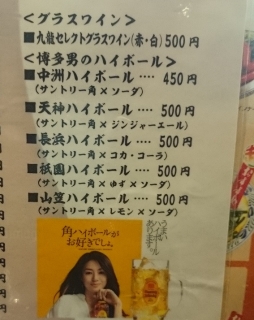 <グラスワイン>
■九龍セレクトグラスワイン(赤・白)500円
<博多男のハイボール>
■中洲ハイボール‥‥ 450円
(サントリー角×ソーダ)
■天神ハイボール‥‥ 500円
(サントリー角×ジンジャーエール)
■長浜ハイボール‥‥ 500円
(サントリー角×コカ・コーラ)
■祇園ハイボール‥‥ 500円
(サントリー角×ゆず×ソーダ)
■山笠ハイボール‥‥ 500円
(サントリー角×レモン×ソーダ)
角ハイボールが
お好きでしょ。
うまい
ハイボール
あります。
円
円
円
円
円
円
円